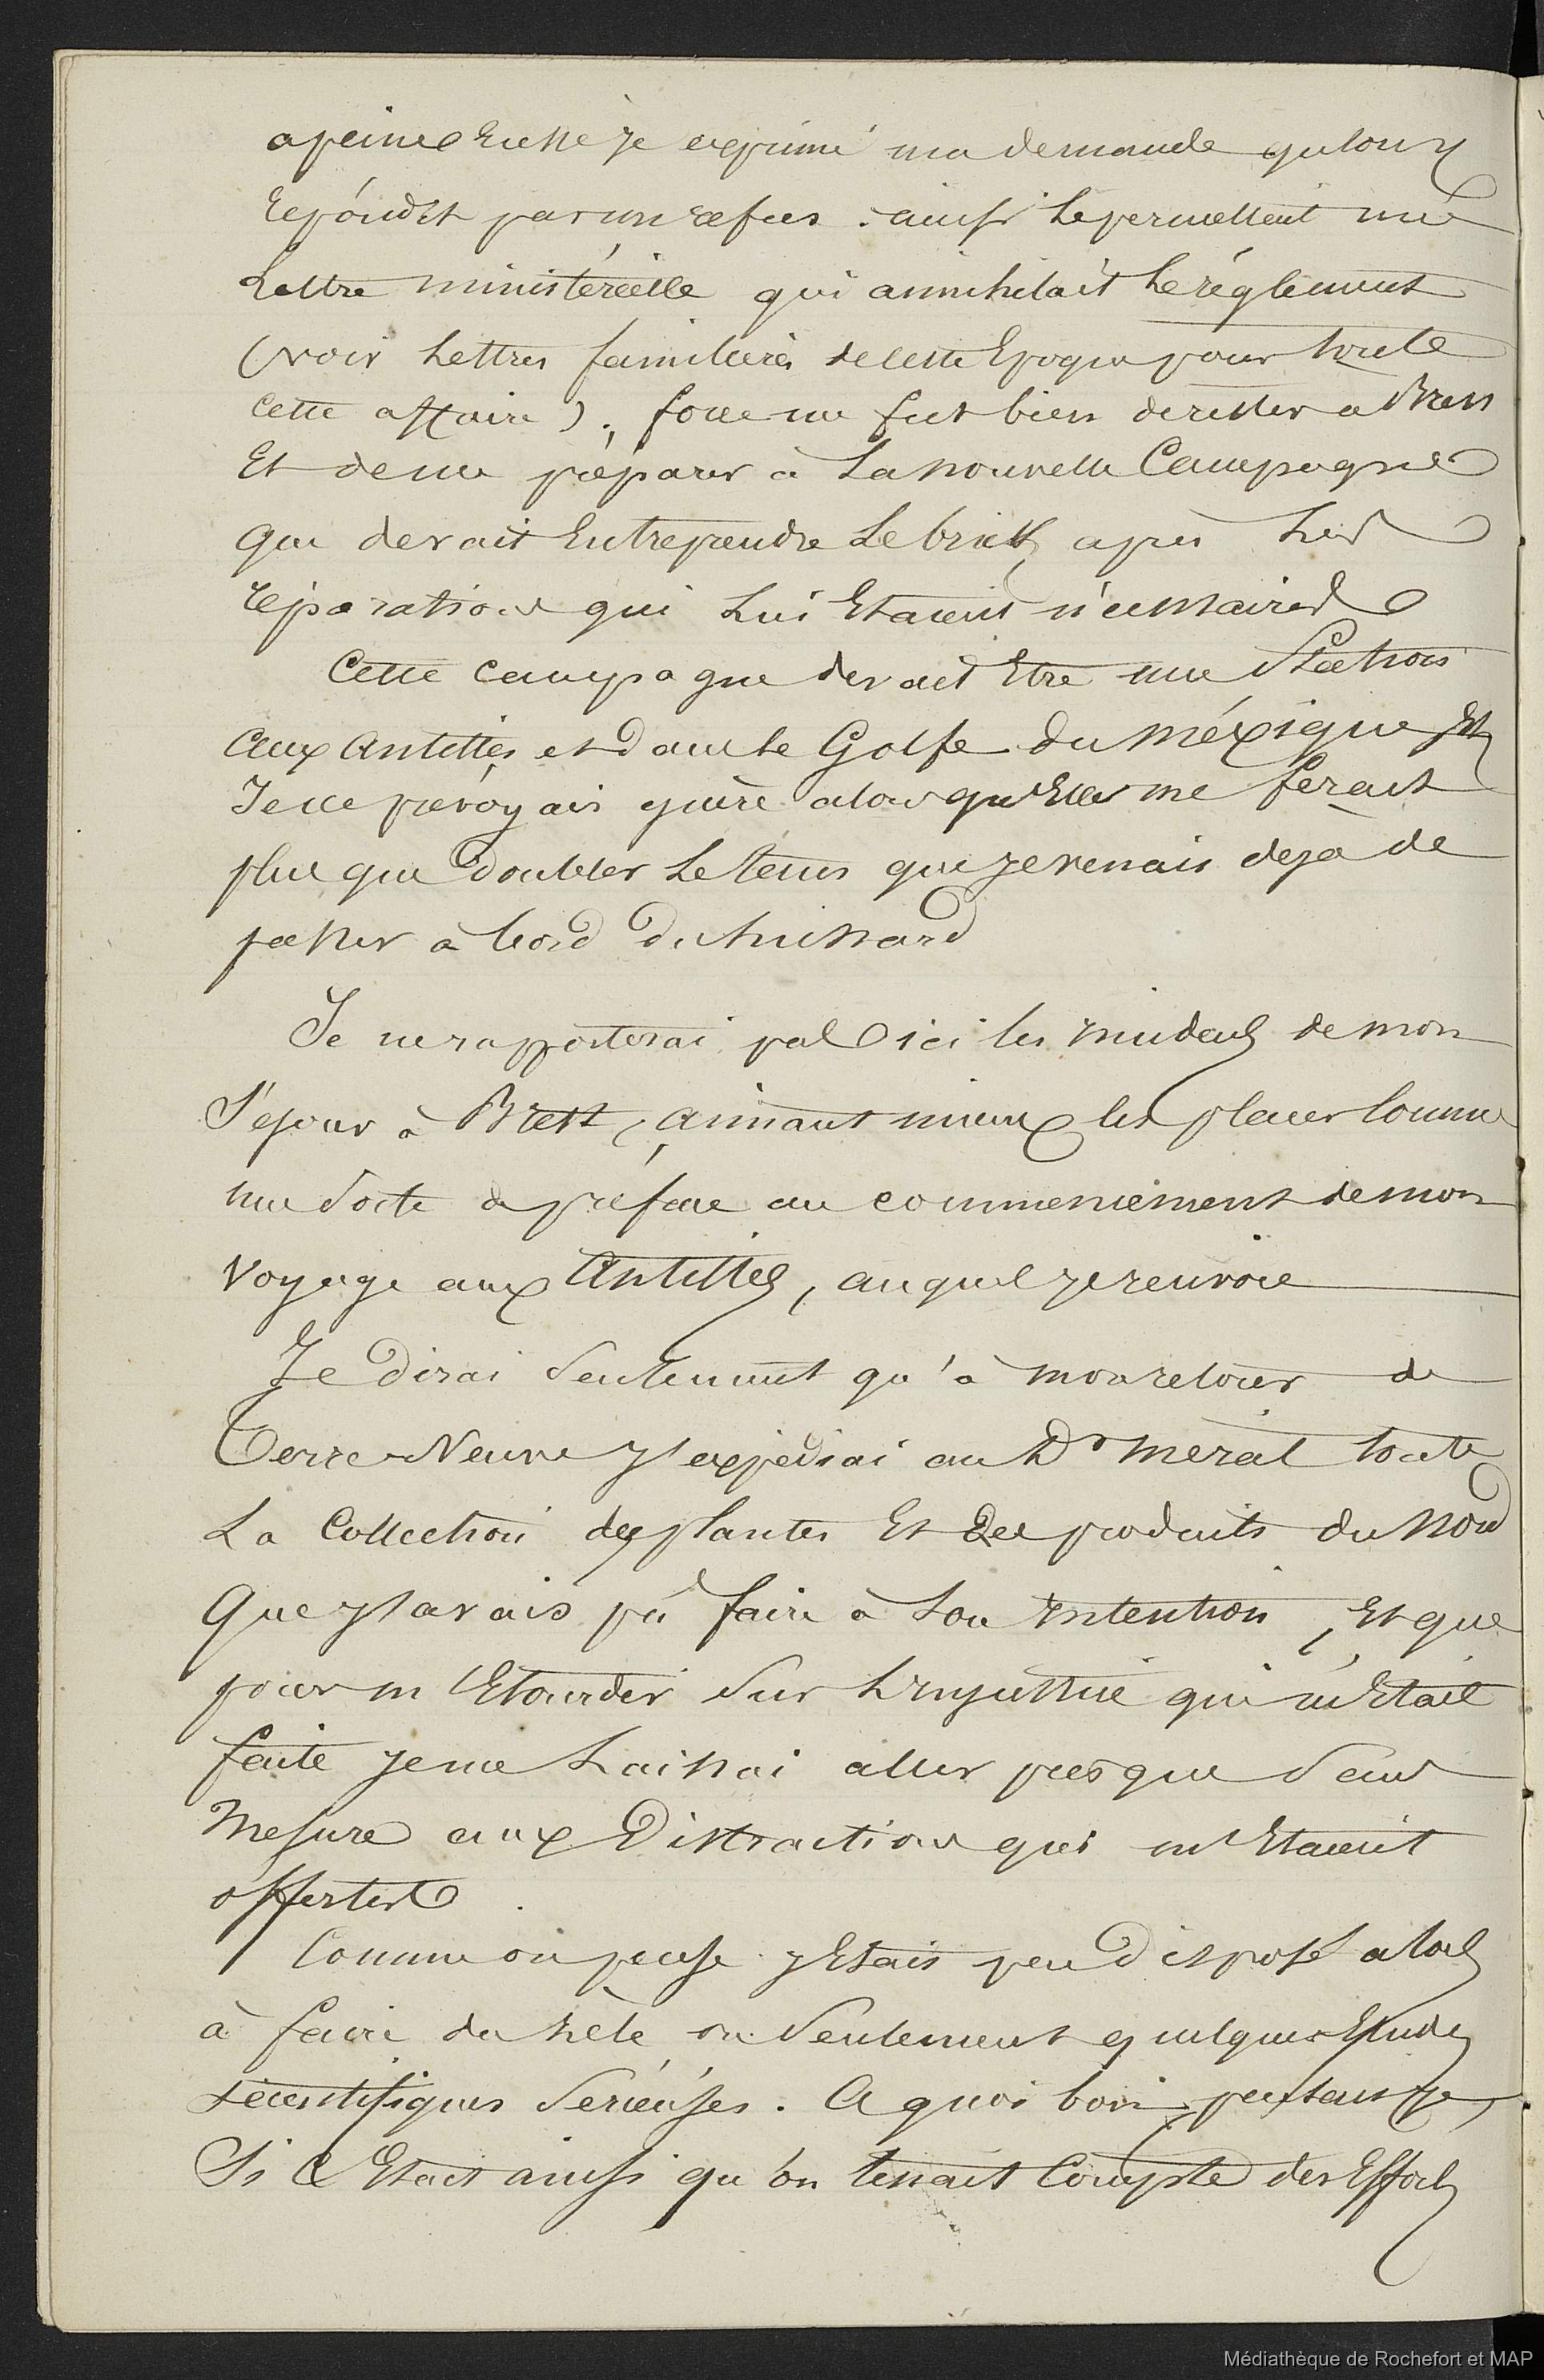 apeine Eussè je exprimé ma demande qu'on y
repóndit par un refus . ainsi le permettait une
Lettre ministérielle qui annihilait le réglement
(voir Lettres familieres de cette Epoque pour toute
cette affaire ) , force me fut bien de rester a Brest
Et de me préparer à La nouvelle Campagne
que devait Entreprendre Le brick, apres Les
réparations qui Lui Etaient nécessaires
Cette campagne devait Etre une Station
aux Antilles et dans le Golfe du méxique Et
Je ne prévoyais guère alors qu'Elle me ferait
plus que doubler Le tems que je venais deja de
passer à bord du hussard
Je ne rapporterai pas ici les incidents de mon
Séjour à Brest, aimant mieux les placer comme
une Sorte de préface au commencement de mon
voyage aux Antilles, auquel je renvoie
Je Dirai Seulement qu'à mon retour de
Terre-Neuve j'expédiai au Dr merat toute
La Collection des plantes Et des produits du Nord
Que j'avais pû faire à Son intention, Et que
pour m'Etourdir Sur L'injustice qui m'Etait
faite je me Laissai aller presque Sans
Mesure aux Distractions qui m'Etaient
offertes .
Comme on pense j'Etais peu disposé alors
à faire du zèle ou Seulement quelques Etudes
scientifiques Serieuses . A quoi bon, pensais-je,
Si C'Etait ainsi qu'on tenait Compte des Efforts
Médiathèque de Rochefort et MAP